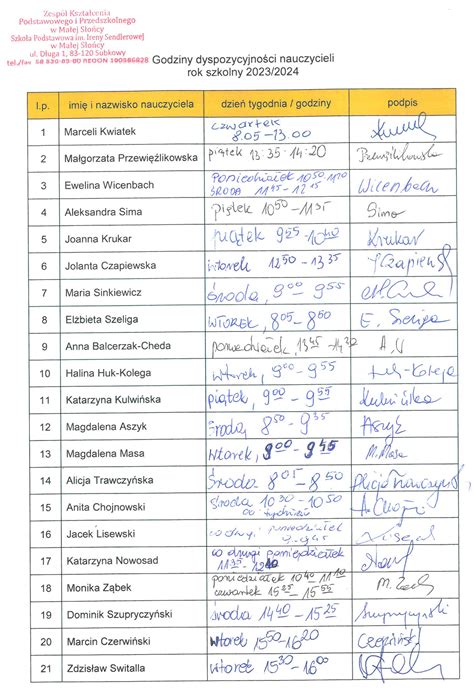 Zespół Kształcenia
Podstawowego i Przedszkolnego
w Małej Słońcy
Szkoła Podstawowa im. Ireny Sendlerowej
w Małej Słońcy
ul. Długa 1, 83-120 Subkowy
Godziny dyspozycyjności nauczycieli
rok szkolny 2023/2024
l.p. imię i nazwisko nauczyciela dzień tygodnia / godziny podpis
1 Marceli Kwiatek czwartek 8.05-13.00
2 Małgorzata Przewięźlikowska piątek 13:35-14:20
3 Ewelina Wicenbach Poniedziałek 10 50 11 10 Wicenbach
ŚRODA 11 45 - 12 15
4 Aleksandra Sima piątek 10 50 - 11 35 Sima
5 Joanna Krukar piątek 9 55 - 10 40 Krukar
6 Jolanta Czapiewska wtorek 12 50 - 13 35
7 Maria Sinkiewicz środa, 9 00 - 9 55
8 Elżbieta Szeliga WTOREK, 8 05 - 8 50 E. Szeliga
9 Anna Balcerzak-Cheda poniedziałek, 13 45 - 14 32
10 Halina Huk-Kolega wtorek, 9 00 - 9 55 Huk-Kolega
11 Katarzyna Kulwińska piątek, 9 00 - 9 55 Kulwińska
12 Magdalena Aszyk środa, 8 50 - 9 35 Aszyk
13 Magdalena Masa wtorek, 9 00 - 9 45 M. Masa
14 Alicja Trawczyńska Środa 8 05 - 8 50 Alicja Trawczyńska
15 Anita Chojnowski środa 10 30 - 10 50
co tydzień
16 Jacek Lisewski co drugi poniedziałek
17 Katarzyna Nowosad co drugi poniedziałek
11 35 -
18 Monika Ząbek poniedziałek 10 40 - 11 10
czwartek 15 25 - 15 55
19 Dominik Szupryczyński środa 14 40 - 15 25 Szupryczyński
20 Marcin Czerwiński wtorek 15 50 - 16 20 Czerwiński
21 Zdzisław Switalla wtorek 15 30 - 16 00